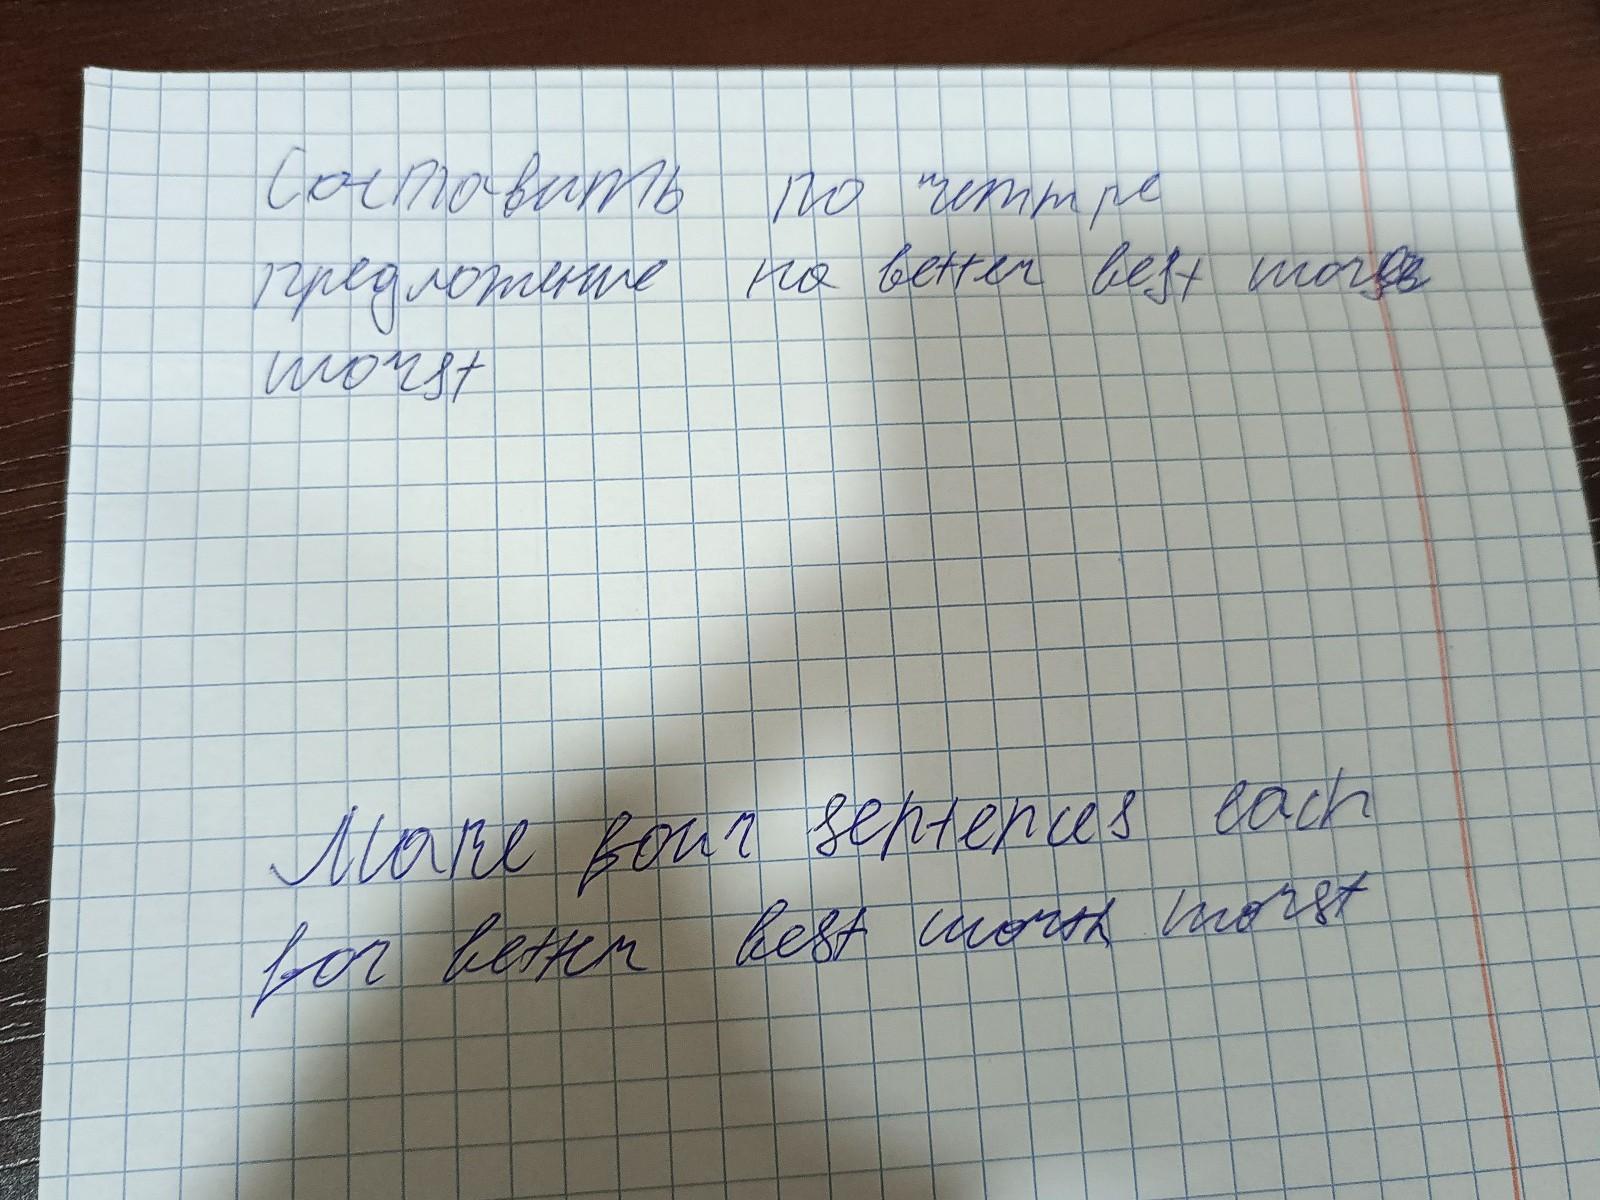 Составить по четтре
предложение на better best worse
worst
Make four sentences each
for better best worth worst